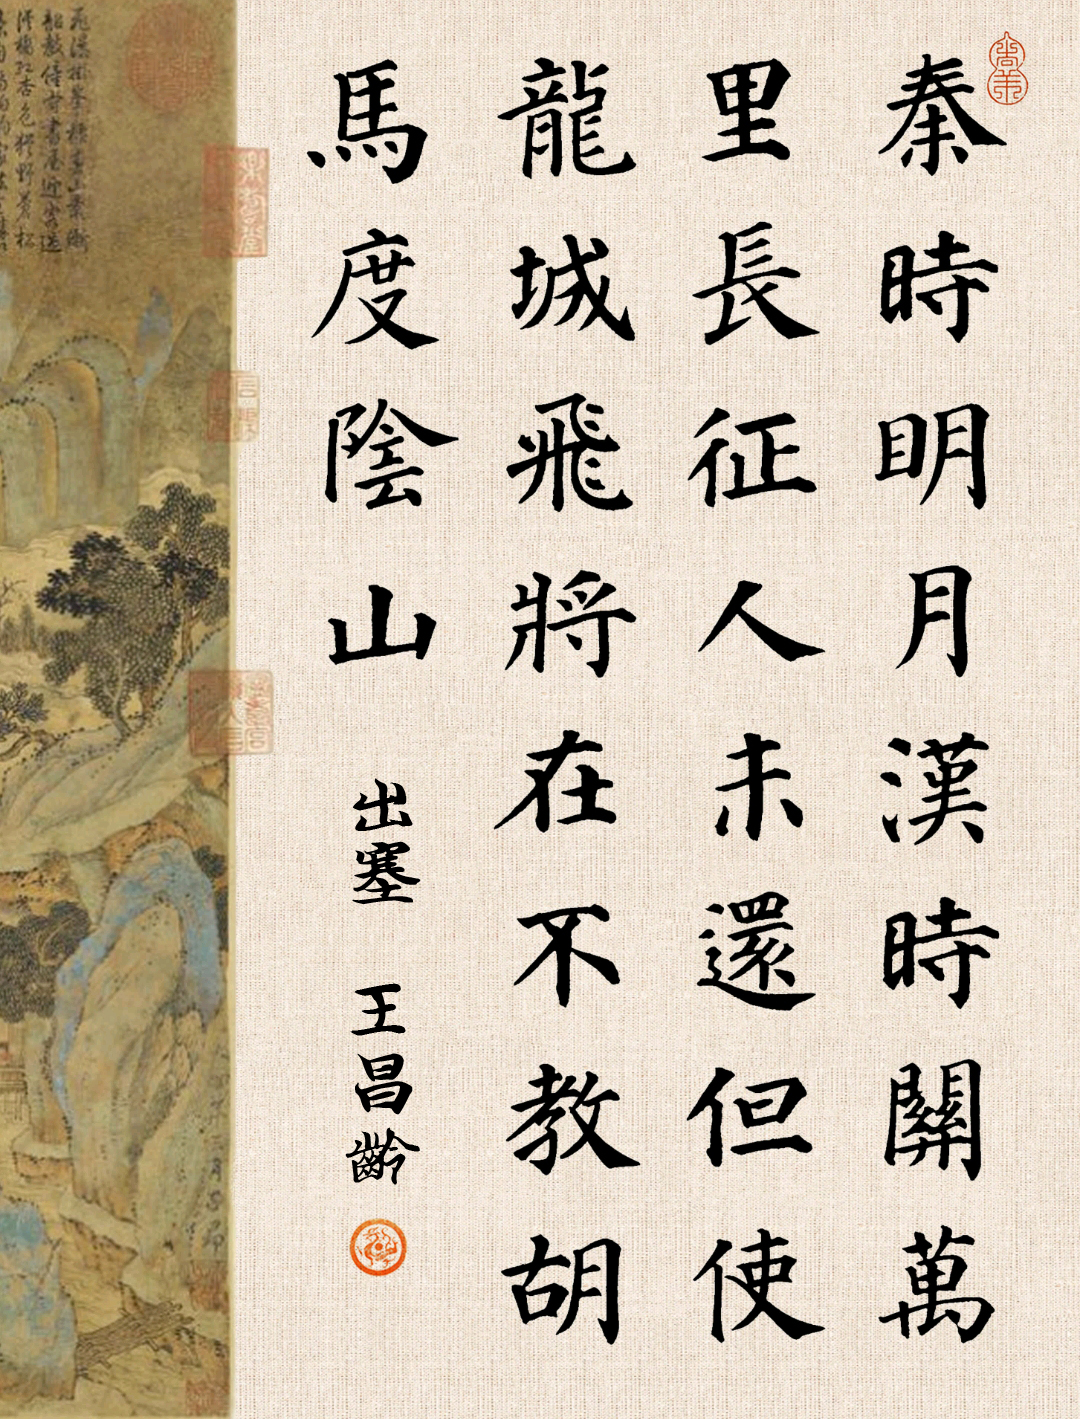 秦時明月漢時關萬
里長征人未還但使
龍城飛將在不教胡
馬度陰山
出塞 王昌齡